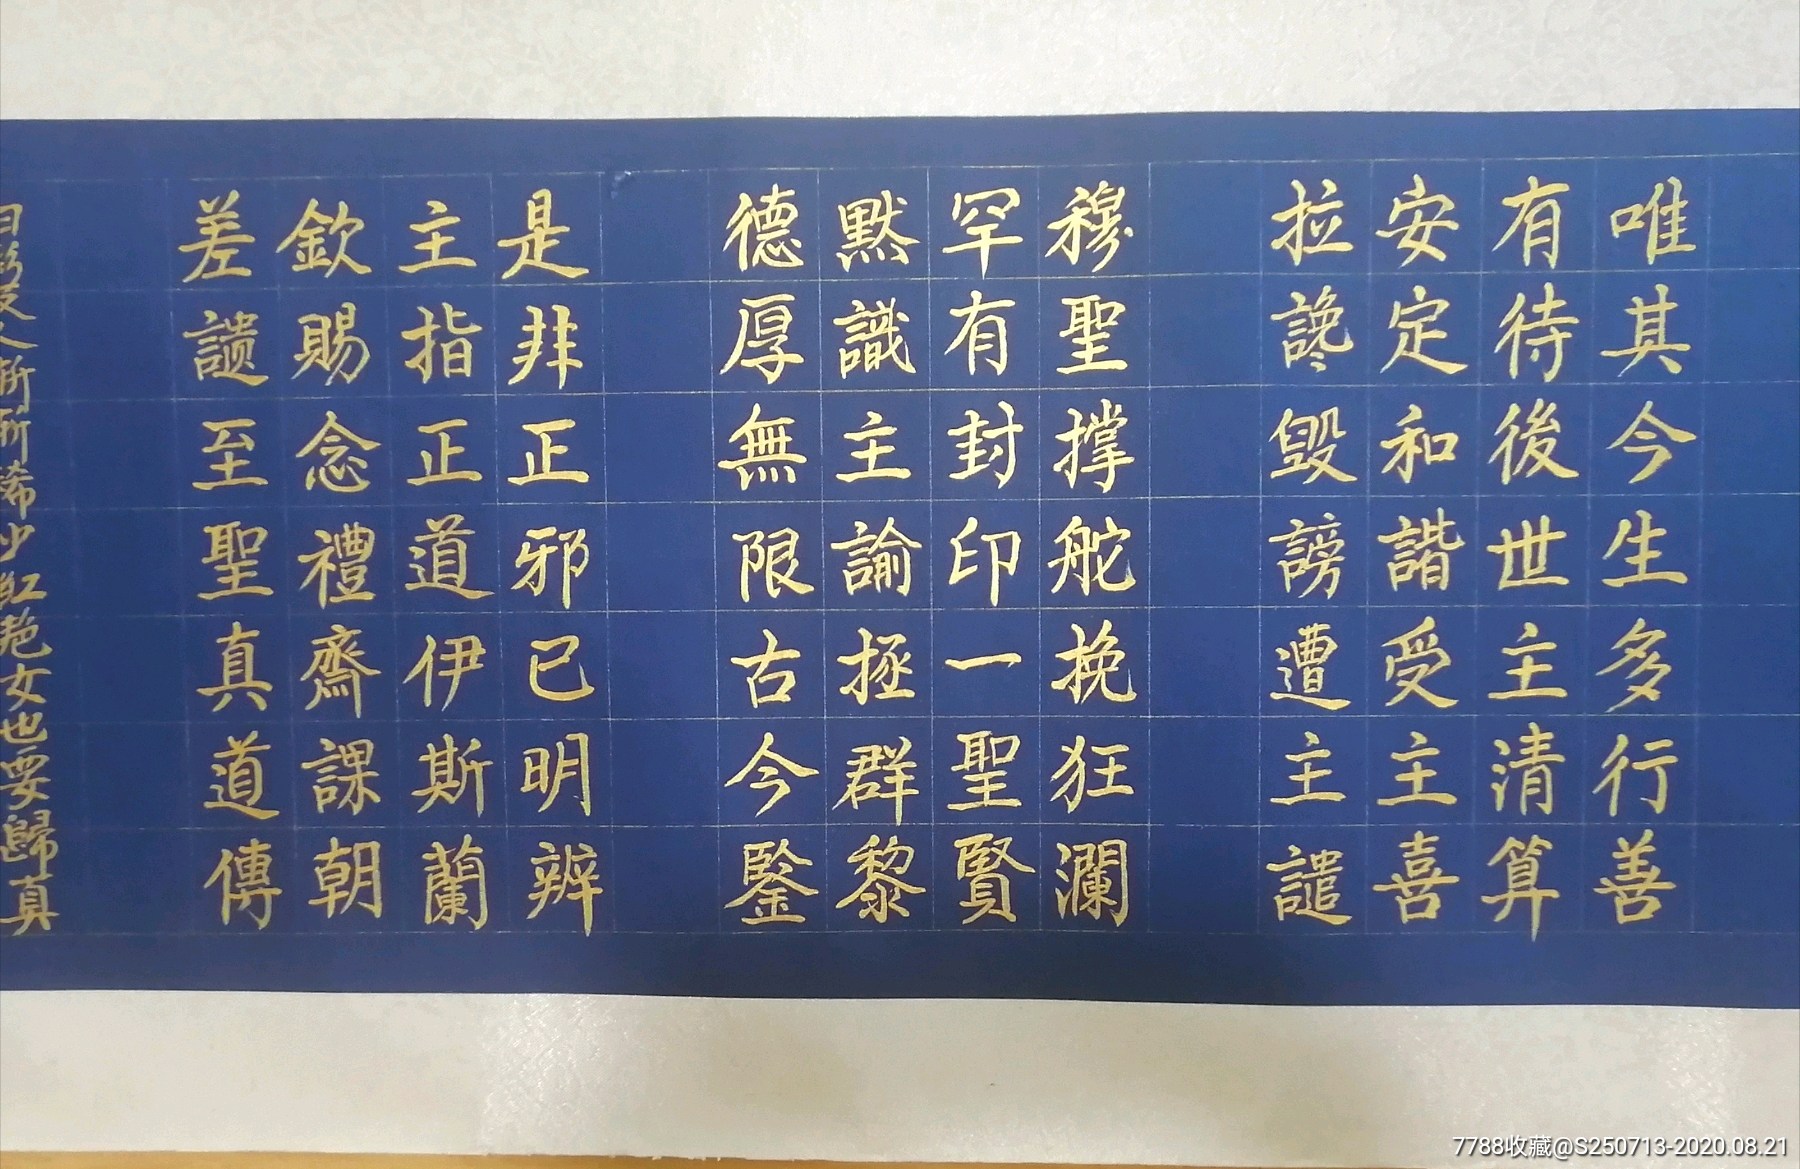 唯其今生多行善
有待後世主清算
安定和諧受主喜
拉讒毀謗遭主譴
穆聖撑舵挽狂瀾
罕有封印一聖賢
黙識主諭拯群黎
德厚無限古今鑒
是非正邪已明辨
主指正道伊斯蘭
欽賜念禮齋課朝
差譴至聖真道傳
女也要歸真
7788收藏@S250713-2020.08.21